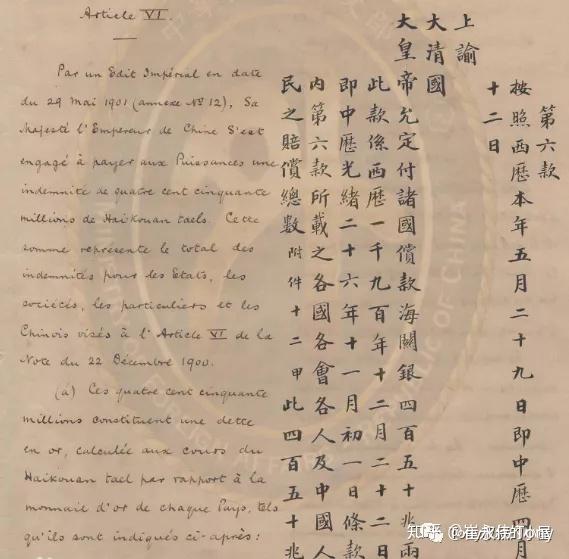 Article VI.
Par un Edit Impérial en date
du 29 Mai 1901 (annexe No 12), Sa
Majesté l'Empereur de Chine s'est
engagé à payer aux Puissances une
indemnité de quatre cent cinquante
millions de Haikouan taels. Cette
somme représente le total des
indemnités pour les Etats, les
sociétés, les particuliers et les
Chinois visés à l'Article VI de la
Note du 22 Décembre 1900.
(a) Ces quatre cent cinquante
millions constituent une dette
en or, calculée au cours du
Haikouan tael par rapport à la
monnaie d'or de chaque Pays, tels
qu'ils sont indiqués ci-après:
第六款
按照西歷本年五月二十九日即中歷四月
十二日
上諭
大清國
大皇帝允定付諸國償款海關銀四百五十兆兩
此款係西歷一千九百年十二月二十二日
即中歷光緒二十六年十一月初一日條款
內第六款所載之各國各會各人及中國人
民之賠償總數附件十二甲此四百五十兆
知乎